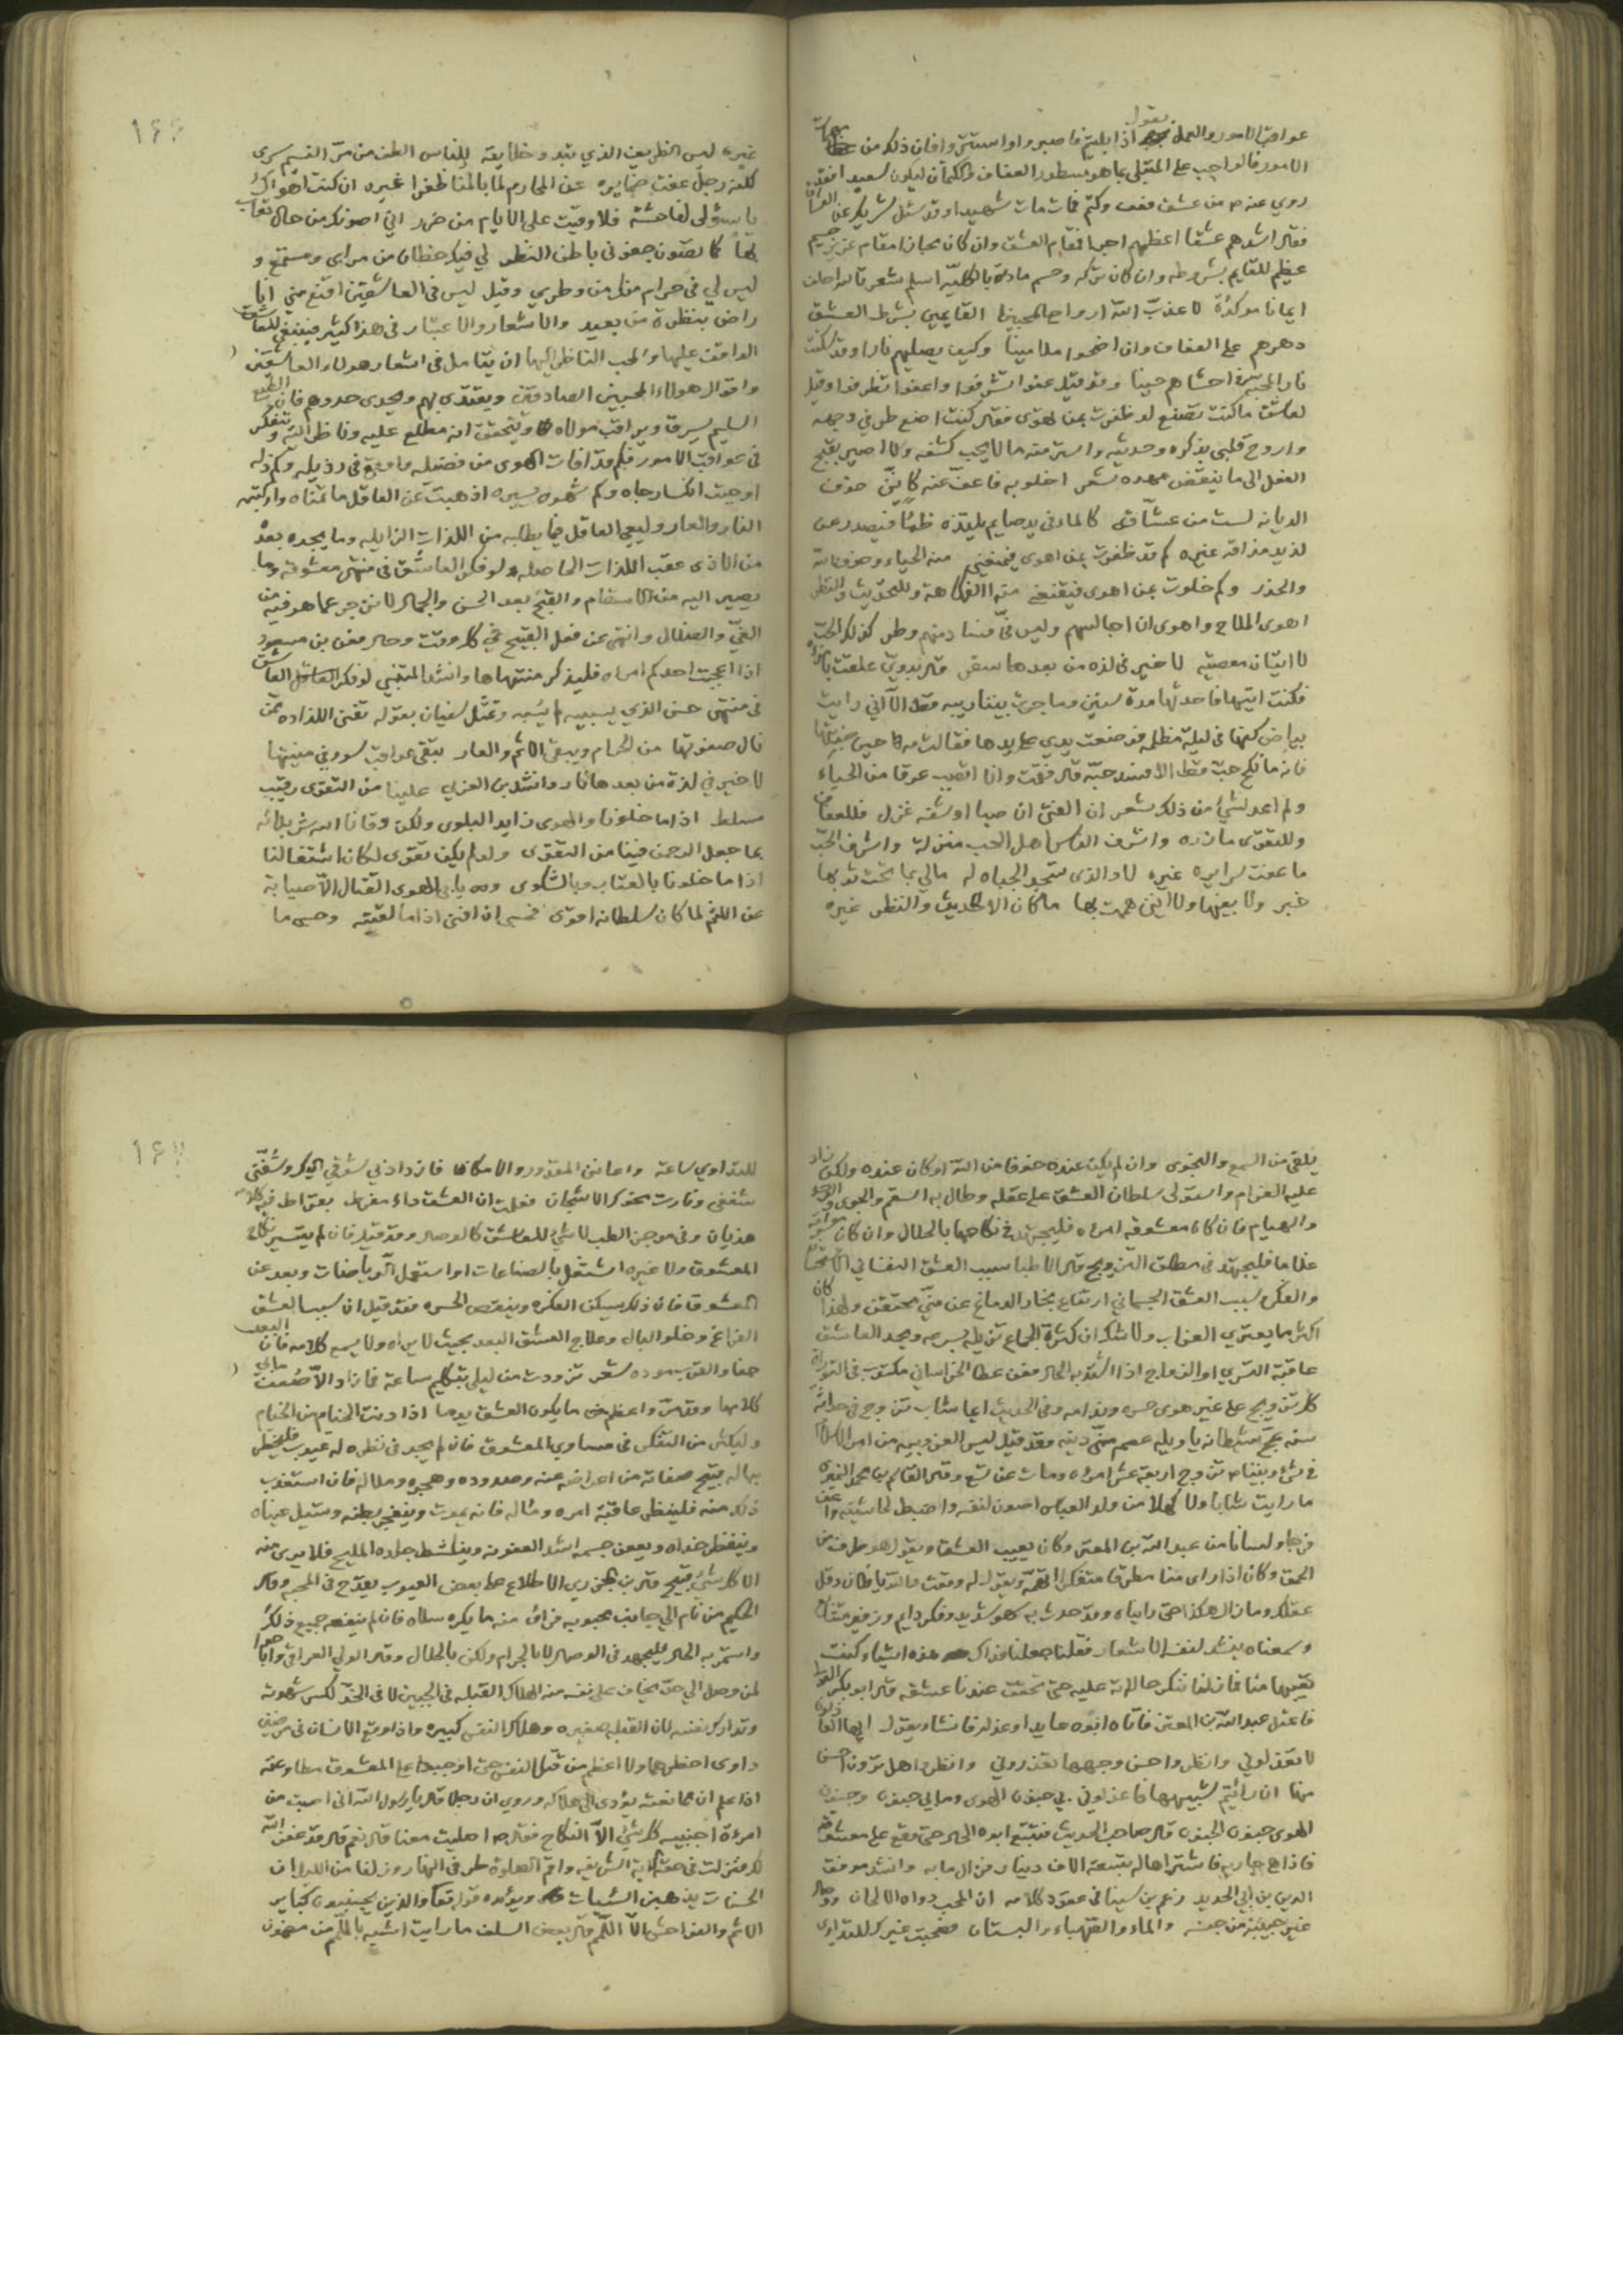 عواقب الامور والعمل بقول اذا بليتم فاصبروا واستتروا فان ذلك من
الامور فالواجب على المبتلى بما هو مسطور العفاف والكتمان ليكون سعيدا فقد
روي عنه ص من عشق فعف وكتم فمات مات شهيدا وقد سئل شريك عن العشاق
فقال اشدهم عشقا اعظمهم اجرا فمقام العشق وان كان مجازا مقام عزيز جسيم
عظيم للقايم بشروطه وان كان تركه وحسم مادته بالكلية اسلم شعر
ايمانا موكدة لا عذب الله ارواح المحبينا القايمين بشرط العشق
دهرهم على العفاف وان اضحوا ملامينا وكيف يصليهم نارا وقد سكنت
نار المحبة في احشاهم حينا وقد قيل عفوا تشرفوا واعفوا تظرفوا وقيل
لعاشق ما كنت تصنع لو ظفرت بمن تهوى فقال كنت امتع طرفي في وجهه
واروح قلبي بذكره وحديثه واستر منه ما لا يحب كشفه ولا اصير بقبح
الفعل الى ما ينقض عهده شعر اخلو به فاعف عنه كانني خوف
الديانة لست من عشاقه كالماء في يد صايم يلتذه ظمأ فيصدر عن
لذيذ مذاقه غيره كم قد ظفرت بمن اهوى فيمنعني منه الحياء وخوف الله
والحذر وكم خلوت بمن اهوى فيقنعني منه الفكاهة والتحديث والنظر
اهوى الملاح واهوى ان اجالسهم وليس لي في فساد منهم وطر كذلك الحب
لا اتيان معصية لا خير في لذة من بعدها سقر قال بدوي علقت بامراة
فكنت اتيها فاحدثها مدة سنين وما جرت بيننا ريبة قط الا اني رايت
بياض كفها في ليلة مظلمة فوضعت يدي على يدها فقالت مه لا
فانه ما نكح حب قط الا فسد حبه قال فقمت وانا اتصبب عرقا من الحياء
ولم اعد لشئ من ذلك شعر ان الفتى ان صبا او شفه غزل فللعفاف
وللتقوى مازره واشرف الناس اهل الحب منزلة واشرف الحب
ما عفت سرايره غيره لا والذى تسجد الجباه له مالي بما تحت ثوبها
خبر ولا بفيها ولا هممت بها ما كان الا الحديث والنظر غيره
غيره ليس الظريف الذي تبدو خلايقه للناس الطف من مر النسيم سرى
لكنه رجل عفت ضمايره عن المحارم لما بالمنا ظفرا غيره ان كنت اهواك
يا سؤلى لفاحشة فلا وقيت على الايام من ضرر اني اصونك من حال تعاب
بها كما تصون جفوني باطن النظر لي فيك حظان من مراى ومستمع و
ليس لي في حرام منك من وطر وقيل ليس في العاشقين اقنع مني انا
راض بنظرة من بعيد والاشعار والاعتبار في هذا كثير فينبغي للعاشق
الواقف عليها والمحب الناظر اليها ان يتامل في اشعار هولاء العاشقين
واقوال هولاء المحبين الصادقين ويقتدى بهم ويحذى حدوهم فان الطبع
السليم يسرق ويراقب مولاه ويتحقق انه مطلع عليه وناظر اليه ويتفكر
في عواقب الامور فكم قد افات الهوى من فضيلة واوقع في رذيلة وكم زلة
اوجبت انكسار جاه وكم شهوة يسيرة اذهبت عن الغافل ما تمناه واركبته
النار والعار وليعي العاقل فيما يطلبه من اللذات الزايلة وما يجده بعد
من الاذى عقب اللذات الحاصلة لو فكر العاشق في منتهى معشوقه وما
يصير اليه من الاسقام والقبح بعد الحسن والجمال لانزجر عما هو فيه من
الغي والضلال وانتهى عن فعل القبيح في كل وقت وحال فعن بن مسعود
اذا اعجبت احدكم امراه فليذكر منتهاها وانشد المتنبي لو فكر العاشق
في منتهى حسن الذي يسبيه لم يسبه وتمثل سفيان بقوله تفنى اللذاذة ممن
نال صفوتها من الحرام ويبقى الاثم والعار تبقى عواقب سوء في مغبتها
لا خير في لذة من بعدها نار وانشد بن العربي علينا من التقوى رقيب
مسلط اذا ما خلونا والهوى زايد البلوى ولكن وقانا الله شر بلائه
بما جعل الرحمن فينا من التقوى ولو لم يكن تقوى لكان اشتغالنا
اذا ما خلونا بالعتاب وبالشكوى يابى الهوى القتال الا صيانة
عن اللثم لما كان سلطانه اقوى فحسبي ان افنى اذا ما لقيته وحسبي ما
يلقى من السمع والنجوى وان لم يكن عنده خوفا من الله او كان عنده ولكن زاد
عليه الغرام واستولى سلطان العشق على عقله وطال به السقم والجوى
والهيام فان كان معشوقه امراة فليجتهد في نكاحها بالحلال وان كان
غلاما فليجتهد في مطلق التزويج قال الاطبا سبب العشق النفساني الاستحسان
والفكر وسبب العشق الجسماني ارتفاع بخار الى الدماغ عن مني محتقن ولهذا كان
اكثر ما يعتري العزاب ولا شك ان كثرة الجماع تزيله بسرعة ويجد العاشق
عاقبة التسري او الزواج اذا اشتد به الحال فعن عطا الخراساني مكتوب في التوراة
كل تزويج على غير هوى حسرة وندامة وفي الحديث ايما شاب تزوج في حداثة
سنه عج شيطانه يا ويله عصم مني دينه وقد قيل ليس العزوبية من امر الاسلام
في شئ ونبينا ص تزوج اربعة عشر امراة ومات عن تسع وقال القاسم بن محمد النميري
ما رايت شابا ولا كهلا من ولد العباس اصون لنفسه واضبط لحاشيته واعف
فرجا ولسانا من عبد الله بن المعتز وكان يعيب العشق ويقول هو طرف من
الحمق وكان اذا راى منا مطرقا متفكرا اتهمه ويقول له وقعت والله يا فلان وقل
عقلك وما زال هكذا حتى رايناه وقد حدث به سهو شديد وفكر دايم وزفير متتابع
وسمعناه ينشد لنفسه الاشعار فقلنا جعلنا فداك هذه اشياء كنت
تعيبها منا فانكر حالاته عليه حتى تحقق عندنا عشقه قال ابو بكر
فاعتل عبد الله بن المعتز فاتاه ابوه عايدا وعذله فانشا يقول ايها العاذلون
لا تعذلوني وانظروا حسن وجهها تعذروني وانظروا هل ترون احسن
منها ان رائيتم شبيهها فاعذلوني بي جنون الهوى وما بي جنون وجنون
الهوى جنون الجنون قال صاحب الحديث فتتبع ابوه الحال حتى وقع على معشوقه
فاذا هي جارية فاشتراها له بتسعة الاف دينار فزال ما به وانشد موفق
الدين بن ابي الحديد زعم بن سينا في عقود كلامه ان المحب دواه الالحان ووصال
غير حبيبه من جنسه والماء والصهباء والبستان فصحبت غيرك للتداوى
للتداوي ساعة واعانني المقدور والامكان فازداد بي شوقي اليك وشفني
شغفي وثارت نحوك الاشجان فعلمت ان العشق داء مفرط بقراط فيه كلامه
هذيان وفي موجز الطب لا شئ للعاشق كالوصال وقد قيل فان لم يتيسر نكاح
المعشوق ولا غيره اشتغل بالصناعات او استعمل الرياضات وبعد عن
المعشوق فان ذلك يسكن الفكرة وينقص الحسرة فقد قيل ان سبب العشق
الفراغ وخلو البال وعلاج العشق البعد بحيث لا يراه ولا يسمع كلامه فان البعد
جفا والقرب مودة شعر تزودت من ليلى بتكليم ساعة فما زاد الا ضعف ما بي
كلامها وقد قيل واعظم ما يكون العشق يوما اذا دنت الخيام من الخيام
وليكثر من التفكر في مساوي المعشوق فان لم يجد في نظره له عيوب فليخطر
بباله قبيح صفاته من اعراضه عنه وصدوده وهجره وملاله فان استغرب
ذلك منه فلينظر عاقبة امره ومثاله فانه يموت وينفجر بطنه وتسيل عيناه
ويتفطر خداه ويعفن جسمه اشد العفونة ويتكشط جلده المليح فلا يرى منه
الا كل شئ قبيح قال بن الجوزي الاطلاع على بعض العيوب يقدح في المحبة وقال
الحكيم من نام الى جانب محبوبه فراى منه ما يكره سلاه فان لم ينفعه جميع ذلك
واستمر به الحال فليجهد في الوصال لا بالحرام ولكن بالحلال وقال الولي العراقي واباحوا
لمن وصل الى حد يخاف على نفسه منه الهلاك القبلة في الجبين لا في الخد لكسر شهوته
وتدارك نفسه لان القبلة صغيرة وهلاك النفس كبيرة واذا وقع الانسان في مرضين
داوى اخطرهما ولا اعظم من قتل النفس حتى اوجبوا على المعشوق مطاوعته
اذا علم ان ممانعته يؤدى الى هلاكه وروي ان رجلا قال يا رسول الله اني اصبت من
امرءة اجنبية كل شئ الا النكاح فقال ص اصليت معنا قال نعم قال قد غفر الله
لك فنزلت في حقه الاية الشريفة واقم الصلوة طرفي النهار وزلفا من الليل ان
الحسنات يذهبن السيئات ويؤيده قوله تعالى والذين يجتنبون كباير
الاثم والفواحش الا اللمم قال بعض السلف ما رايت اشبه باللمم من